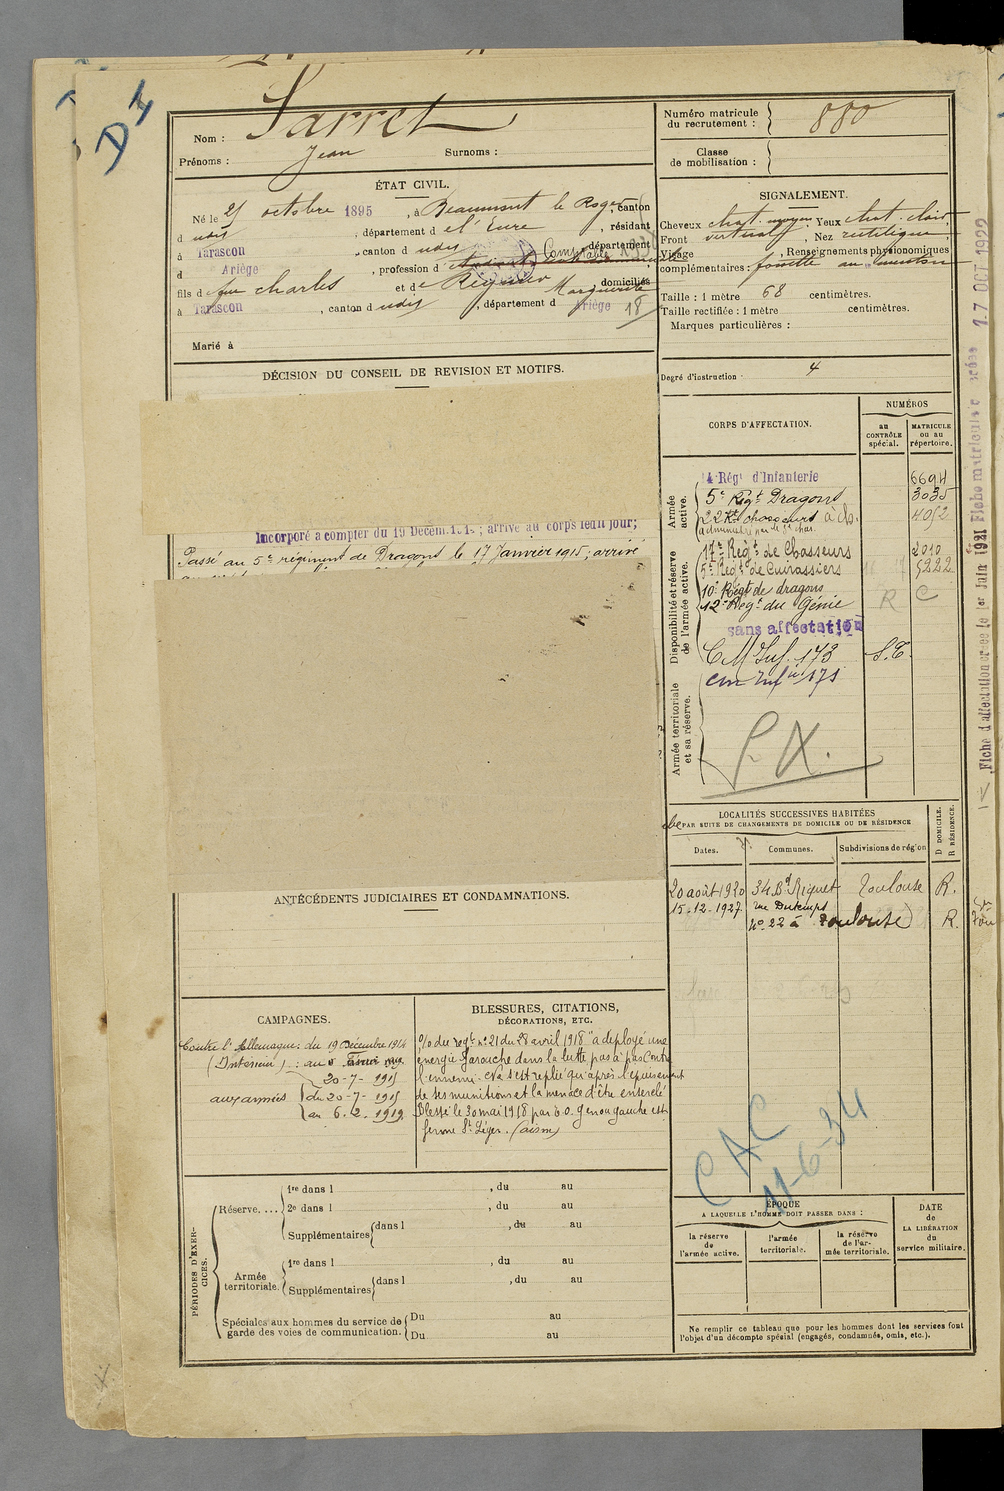 Nom : Sarret
Prénoms : Jean Surnoms :
Numéro matricule du recrutement : 880
Classe de mobilisation :
ÉTAT CIVIL.
Né le 25 octobre 1895, à Beaumont le Roger, canton
d udis, département d e l'Eure, résidant
à Tarascon, canton d udis, département
d Ariège, profession d Comptable
fils d e feu Charles et d e Regnier Marguerite domiciliés
à Tarascon, canton d udis, département d Ariège 18
Marié à
SIGNALEMENT.
Cheveux chat. moyen Yeux chat. clair
Front vertical, Nez rectiligne
Visage , Renseignements physionomiques
complémentaires : fossette au menton
Taille : 1 mètre 68 centimètres.
Taille rectifiée : 1 mètre centimètres.
Marques particulières :
Degré d'instruction 4
DÉCISION DU CONSEIL DE REVISION ET MOTIFS.
Incorporé à compter du 19 Décem. ; arrivé au corps ledit jour;
Passé au 5e régiment de Dragons le 17 Janvier 1915; arrivé
CORPS D'AFFECTATION.
NUMÉROS
au CONTRÔLE spécial.
MATRICULE ou au répertoire.
Armée active.
14 Régt d'Infanterie 6694
5e Régt Dragons 3035
22 Rt chasseurs à ch. 4052
Disponibilité et réserve de l'armée active.
17e Régt de Chasseurs 2010
5e Régt de Cuirassiers 5222
10e Régt de dragons
12e Régt du Génie R C
sans affectation
C M Inf. 173 S.T.
cm Infie 171
Armée territoriale et sa réserve.
P.X.
LOCALITÉS SUCCESSIVES HABITÉES
PAR SUITE DE CHANGEMENTS DE DOMICILE OU DE RÉSIDENCE
Dates. Communes. Subdivisions de région D DOMICILE. R RÉSIDENCE.
20 août 1920 34 Bd Riquet Toulouse R.
15-12-1927 rue Dutemps
No 22 à Toulouse R.
ANTÉCÉDENTS JUDICIAIRES ET CONDAMNATIONS.
CAMPAGNES.
Contre l'Allemagne: du 19 Décembre 1914
(Intérieur) : au
20-7-1915
aux armées du 20-7-1915
au 6.2.1919
BLESSURES, CITATIONS,
DÉCORATIONS, ETC.
O/ du régt no 21 du 28 avril 1918 "a déployé une
énergie farouche dans la lutte pas à pas contre
l'ennemi. Ne s'est replié qu'après l'épuisement
de ses munitions et la menace d'être encerclé
Blessé le 30 mai 1918 par é.o. genou gauche est
ferme St Léger. (aisne)
CAC
11-6-34
PÉRIODES D'EXERCICES.
Réserve....
1re dans l , du au
2e dans l , du au
Supplémentaires dans l , du au
Armée territoriale.
1re dans l , du au
Supplémentaires dans l , du au
Spéciales aux hommes du service de garde des voies de communication.
Du au
Du au
ÉPOQUE
A LAQUELLE L'HOMME DOIT PASSER DANS :
la réserve de l'armée active.
l'armée territoriale.
la réserve de l'armée territoriale.
DATE de LA LIBÉRATION du service militaire.
Ne remplir ce tableau que pour les hommes dont les services font
l'objet d'un décompte spécial (engagés, condamnés, omis, etc.).
Fiche d'affectation créée le 1er Juin 1921 Fiche matricule créée 17 OCT 1922